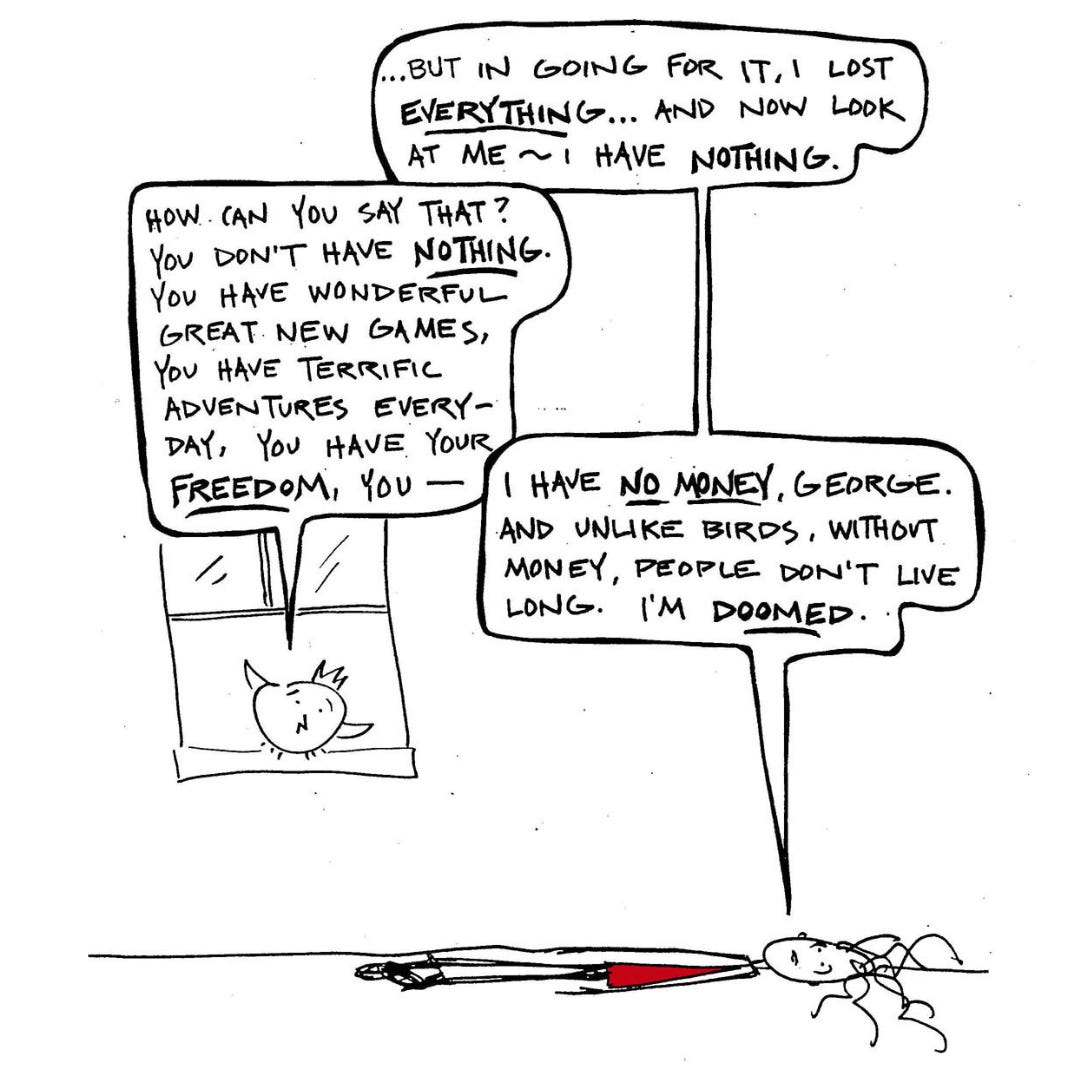 ...BUT IN GOING FOR IT, I LOST
EVERYTHING... AND NOW LOOK
AT ME ~ I HAVE NOTHING.
HOW CAN YOU SAY THAT?
YOU DON'T HAVE NOTHING.
YOU HAVE WONDERFUL
GREAT NEW GAMES,
YOU HAVE TERRIFIC
ADVENTURES EVERY-
DAY, YOU HAVE YOUR
FREEDOM, YOU —
I HAVE NO MONEY, GEORGE.
AND UNLIKE BIRDS, WITHOUT
MONEY, PEOPLE DON'T LIVE
LONG. I'M DOOMED.